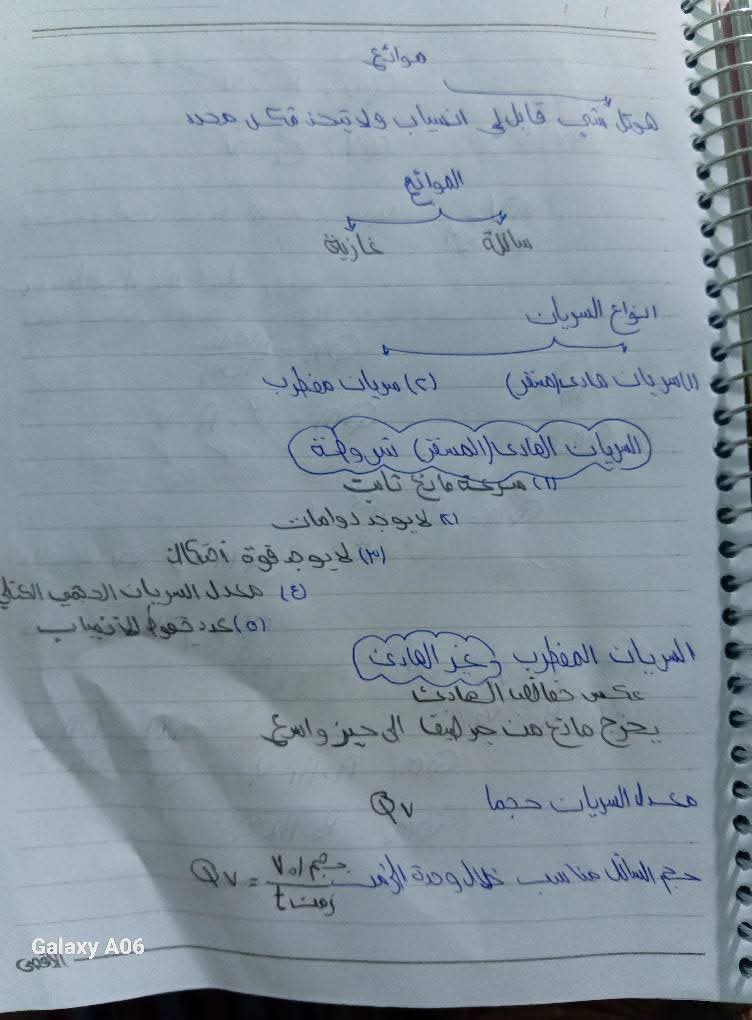 موائع
هو كل شي قابل لي انسياب ولا يتخذ شكل محدد
الموائع
سائلة غازية
انواع السريان
(١) سريان هادئ (مستقر) (٢) سريان مضطرب
السريان الهادئ (المستقر) شروطة
(١) سرعة مائع ثابت
(٢ لا يوجد دوامات
(٣) لا يوجد قوة أحتكاك
(٤) معدل السريان الحجمي الكتلي
(٥) عدد خطوط الانسياب
السريان المضطرب (غير الهادئ)
عكس خصائص الهادئ
يخرج مائع من حيز ضيق الى حيز واسع
معدل السريان حجما Qv
حجم السائل مناسب خلال وحدة الزمن Qv = حجم Vol / زمن t
Galaxy A06